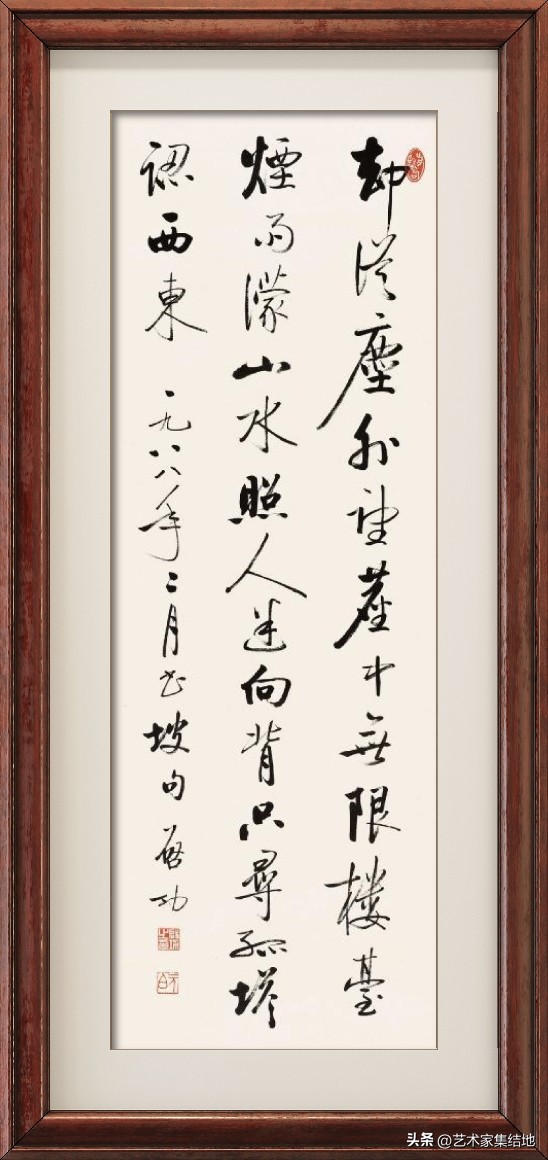 却從塵外望塵中無限樓臺
煙雨濛山水照人迷向背只尋孤塔
認西東 一九八八年二月书坡句 啓功
元白
头条 @艺术家集结地